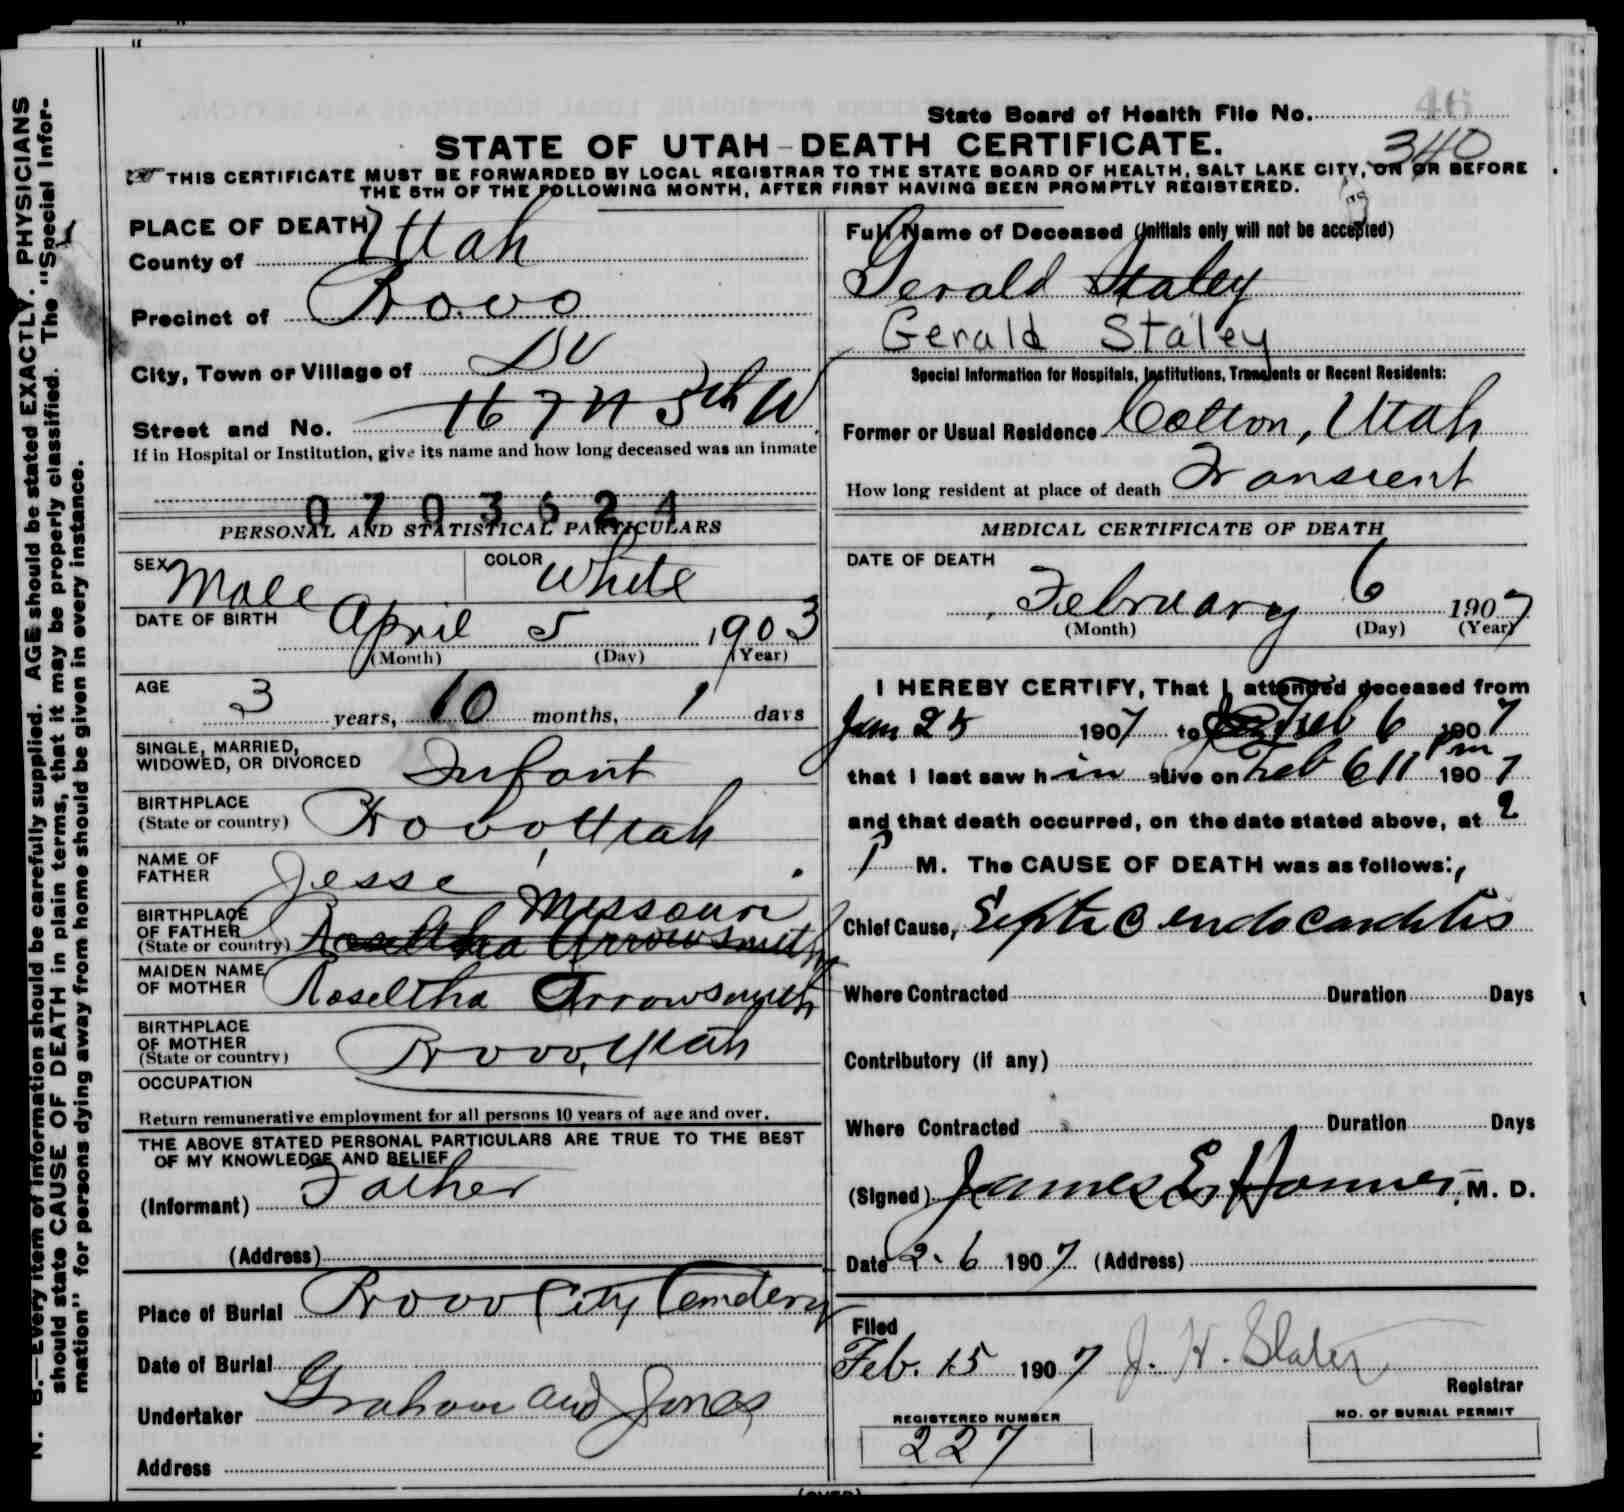 46
State Board of Health File No.
340
STATE OF UTAH-DEATH CERTIFICATE.
THIS CERTIFICATE MUST BE FORWARDED BY LOCAL REGISTRAR TO THE STATE BOARD OF HEALTH, SALT LAKE CITY, ON OR BEFORE
THE 5TH OF THE FOLLOWING MONTH, AFTER FIRST HAVING BEEN PROMPTLY REGISTERED.
PLACE OF DEATH
County of Utah
Precinct of Provo
City, Town or Village of Do
Street and No. 167 N 5th W
If in Hospital or Institution, give its name and how long deceased was an inmate
0703624
PERSONAL AND STATISTICAL PARTICULARS
SEX Male COLOR White
DATE OF BIRTH April 5 1903
(Month) (Day) (Year)
AGE 3 years, 10 months, 1 days
SINGLE, MARRIED,
WIDOWED, OR DIVORCED Infant
BIRTHPLACE
(State or country) Provo, Utah
NAME OF
FATHER Jesse
BIRTHPLACE
OF FATHER Missouri
(State or country) Roseltha Arrowsmith
MAIDEN NAME
OF MOTHER Roseltha Arrowsmith
BIRTHPLACE
OF MOTHER
(State or country) Provo, Utah
OCCUPATION
Return remunerative employment for all persons 10 years of age and over.
THE ABOVE STATED PERSONAL PARTICULARS ARE TRUE TO THE BEST
OF MY KNOWLEDGE AND BELIEF
(Informant) Father
(Address)
Place of Burial Provo City Cemetery
Date of Burial
Undertaker Graham and Jones
Address
Full Name of Deceased (Initials only will not be accepted)
Gerald Staley
Gerald Staley
Special Information for Hospitals, Institutions, Transients or Recent Residents:
Former or Usual Residence Colton, Utah
How long resident at place of death Transient
MEDICAL CERTIFICATE OF DEATH
DATE OF DEATH
February 6 1907
(Month) (Day) (Year)
I HEREBY CERTIFY, That I attended deceased from
Jan 25 1907 to Feb 6 1907
that I last saw h im alive on Feb 6 11 Pm 1907
and that death occurred, on the date stated above, at 2
P M. The CAUSE OF DEATH was as follows:
Chief Cause, Septic endocarditis
Where Contracted Duration Days
Contributory (if any)
Where Contracted Duration Days
(Signed) James E, M. D.
Date 2-6 1907 (Address)
Filed
Feb. 15 1907 J. H. Slater
Registrar
REGISTERED NUMBER
227
NO. OF BURIAL PERMIT
(OVER)
N. B.—Every item of information should be carefully supplied. AGE should be stated EXACTLY. PHYSICIANS
should state CAUSE OF DEATH in plain terms, that it may be properly classified. The "Special Infor-
mation" for persons dying away from home should be given in every instance.